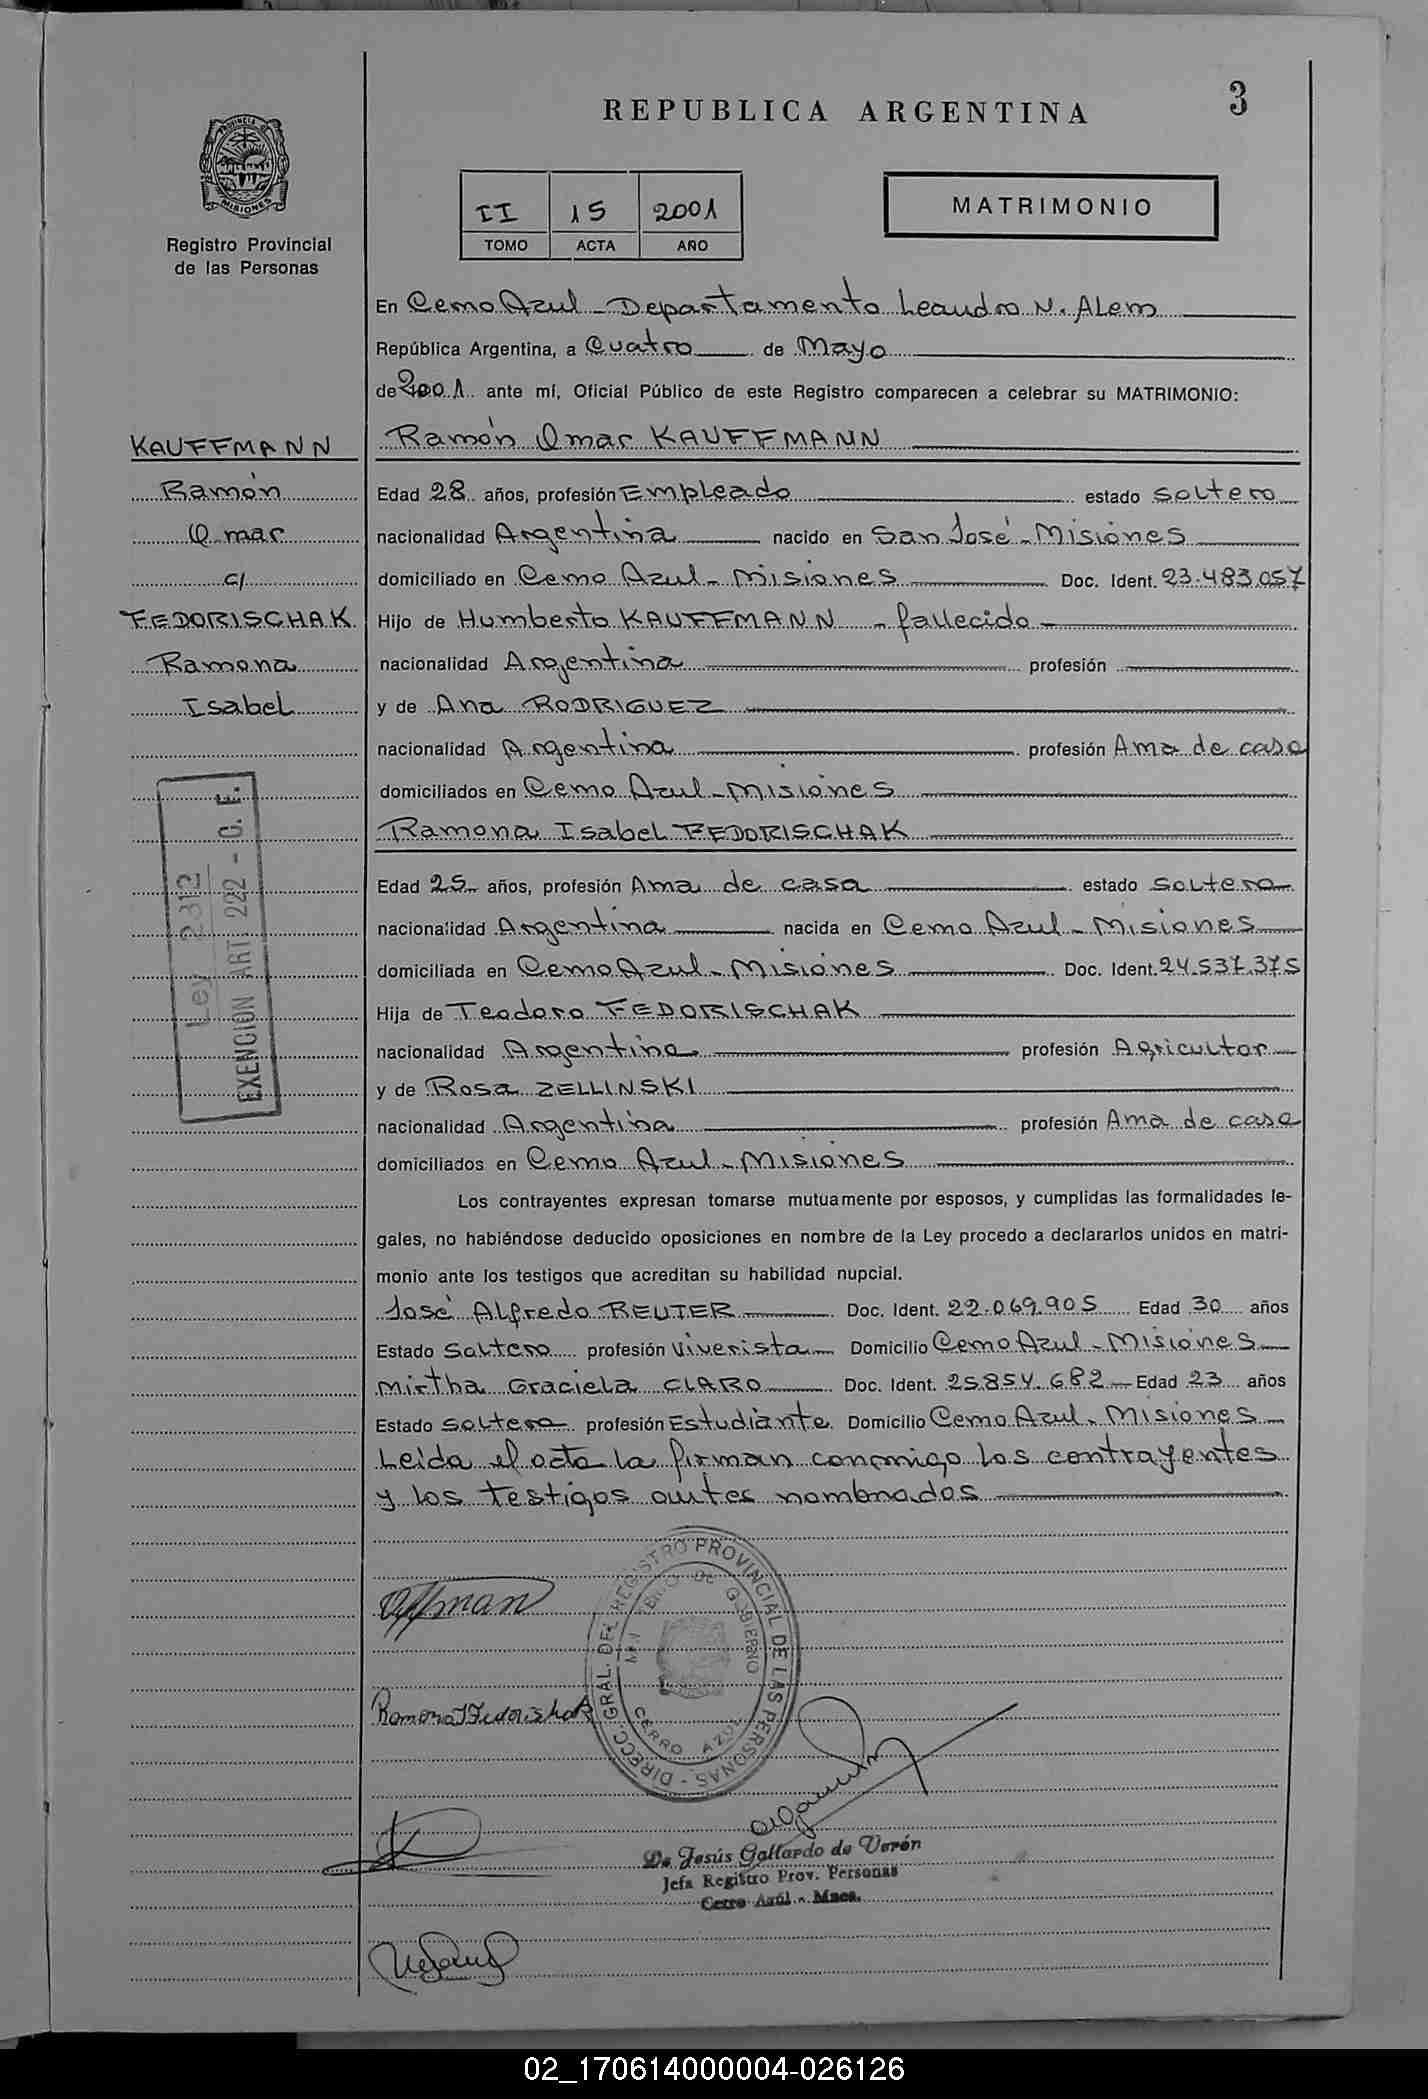 3
REPUBLICA ARGENTINA
PROVINCIA DE
MISIONES
Registro Provincial
de las Personas
II 15 2001
TOMO ACTA AÑO
MATRIMONIO
En Cerro Azul - Departamento Leandro N. Alem
República Argentina, a Cuatro de Mayo
de 2001 ante mí, Oficial Público de este Registro comparecen a celebrar su MATRIMONIO:
KAUFFMANN
Ramón
Omar
c/
FEDORISCHAK
Ramona
Isabel
Ley 2312
EXENCION ART. 222 - C. F.
Ramón Omar KAUFFMANN
Edad 28 años, profesión Empleado estado soltero
nacionalidad Argentina nacido en San José - Misiones
domiciliado en Cerro Azul - Misiones Doc. Ident. 23.483.057
Hijo de Humberto KAUFFMANN - fallecido -
nacionalidad Argentina profesión
y de Ana RODRIGUEZ
nacionalidad Argentina profesión Ama de casa
domiciliados en Cerro Azul - Misiones
Ramona Isabel FEDORISCHAK
Edad 25 años, profesión Ama de casa estado soltera
nacionalidad Argentina nacida en Cerro Azul - Misiones
domiciliada en Cerro Azul - Misiones Doc. Ident. 24.537.375
Hija de Teodoro FEDORISCHAK
nacionalidad Argentina profesión Agricultor
y de Rosa ZELLINSKI
nacionalidad Argentina profesión Ama de casa
domiciliados en Cerro Azul - Misiones
Los contrayentes expresan tomarse mutuamente por esposos, y cumplidas las formalidades le-
gales, no habiéndose deducido oposiciones en nombre de la Ley procedo a declararlos unidos en matri-
monio ante los testigos que acreditan su habilidad nupcial.
José Alfredo REUTER Doc. Ident. 22.069.905 Edad 30 años
Estado Soltero profesión Viverista Domicilio Cerro Azul - Misiones
Mirtha Graciela CLARO Doc. Ident. 25.854.682 - Edad 23 años
Estado soltera profesión Estudiante Domicilio Cerro Azul - Misiones
Leída el acta la firman conmigo los contrayentes
y los testigos antes nombrados
DIRECC. GRAL. DEL REGISTRO PROVINCIAL DE LAS PERSONAS -
MINISTERIO DE GOBIERNO
CERRO AZUL
Ramona I Fedorischak
De Jesús Gallardo de Verón
Jefa Registro Prov. Personas
Cerro Azúl - Mnes.
02_170614000004-026126